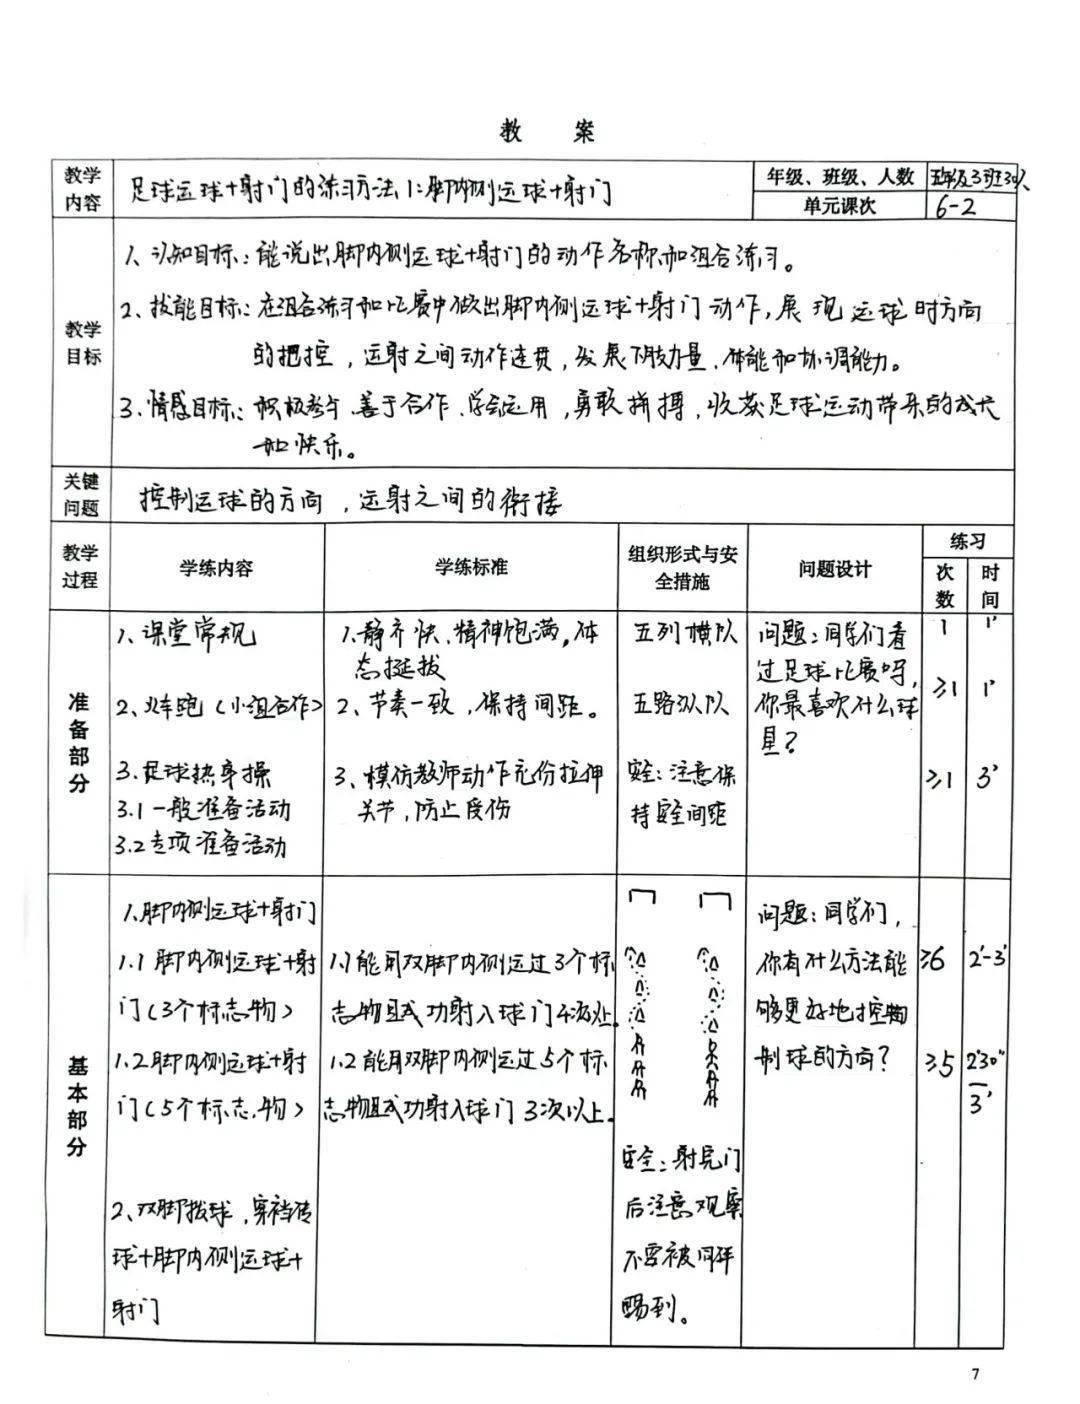 教 案
教学内容
足球运球+射门的练习方法1:脚内侧运球+射门
年级、班级、人数
五年级3班30人
单元课次
6-2
教学目标
1、认知目标:能说出脚内侧运球+射门的动作名称和组合练习。
2、技能目标:在组合练习和比赛中做出脚内侧运球+射门动作,展现运球时方向
的把控,运射之间动作连贯,发展下肢力量、体能和协调能力。
3、情感目标:积极参与、善于合作、学会运用,勇敢拼搏,收获足球运动带来的成长
和快乐。
关键问题
控制运球的方向,运射之间的衔接
教学过程
学练内容
学练标准
组织形式与安全措施
问题设计
练习
次数
时间
准备部分
1、课堂常规
2、火车跑(小组合作)
3、足球热身操
3.1一般准备活动
3.2专项准备活动
1、静齐快、精神饱满,体
态挺拔
2、节奏一致,保持间距。
3、模仿教师动作充份拉伸
关节,防止受伤
五列横队
五路纵队
安全:注意保
持安全间距
问题:同学们看
过足球比赛吗,
你最喜欢什么球
星?
1
≥1
≥1
1'
1'
3'
基本部分
1、脚内侧运球+射门
1.1脚内侧运球+射
门(3个标志物)
1.2脚内侧运球+射
门(5个标志物)
2、双脚拨球,穿裆传
球+脚内侧运球+
射门
1.1能用双脚内侧运过3个标
志物且成功射入球门4次以上。
1.2能用双脚内侧运过5个标
志物且成功射入球门3次以上。
安全:射完门
后注意观察
不要被同伴
踢到。
问题:同学们,
你有什么方法能
够更好地控
制球的方向?
≥6
≥5
2'-3'
2'30"
—
3'
7